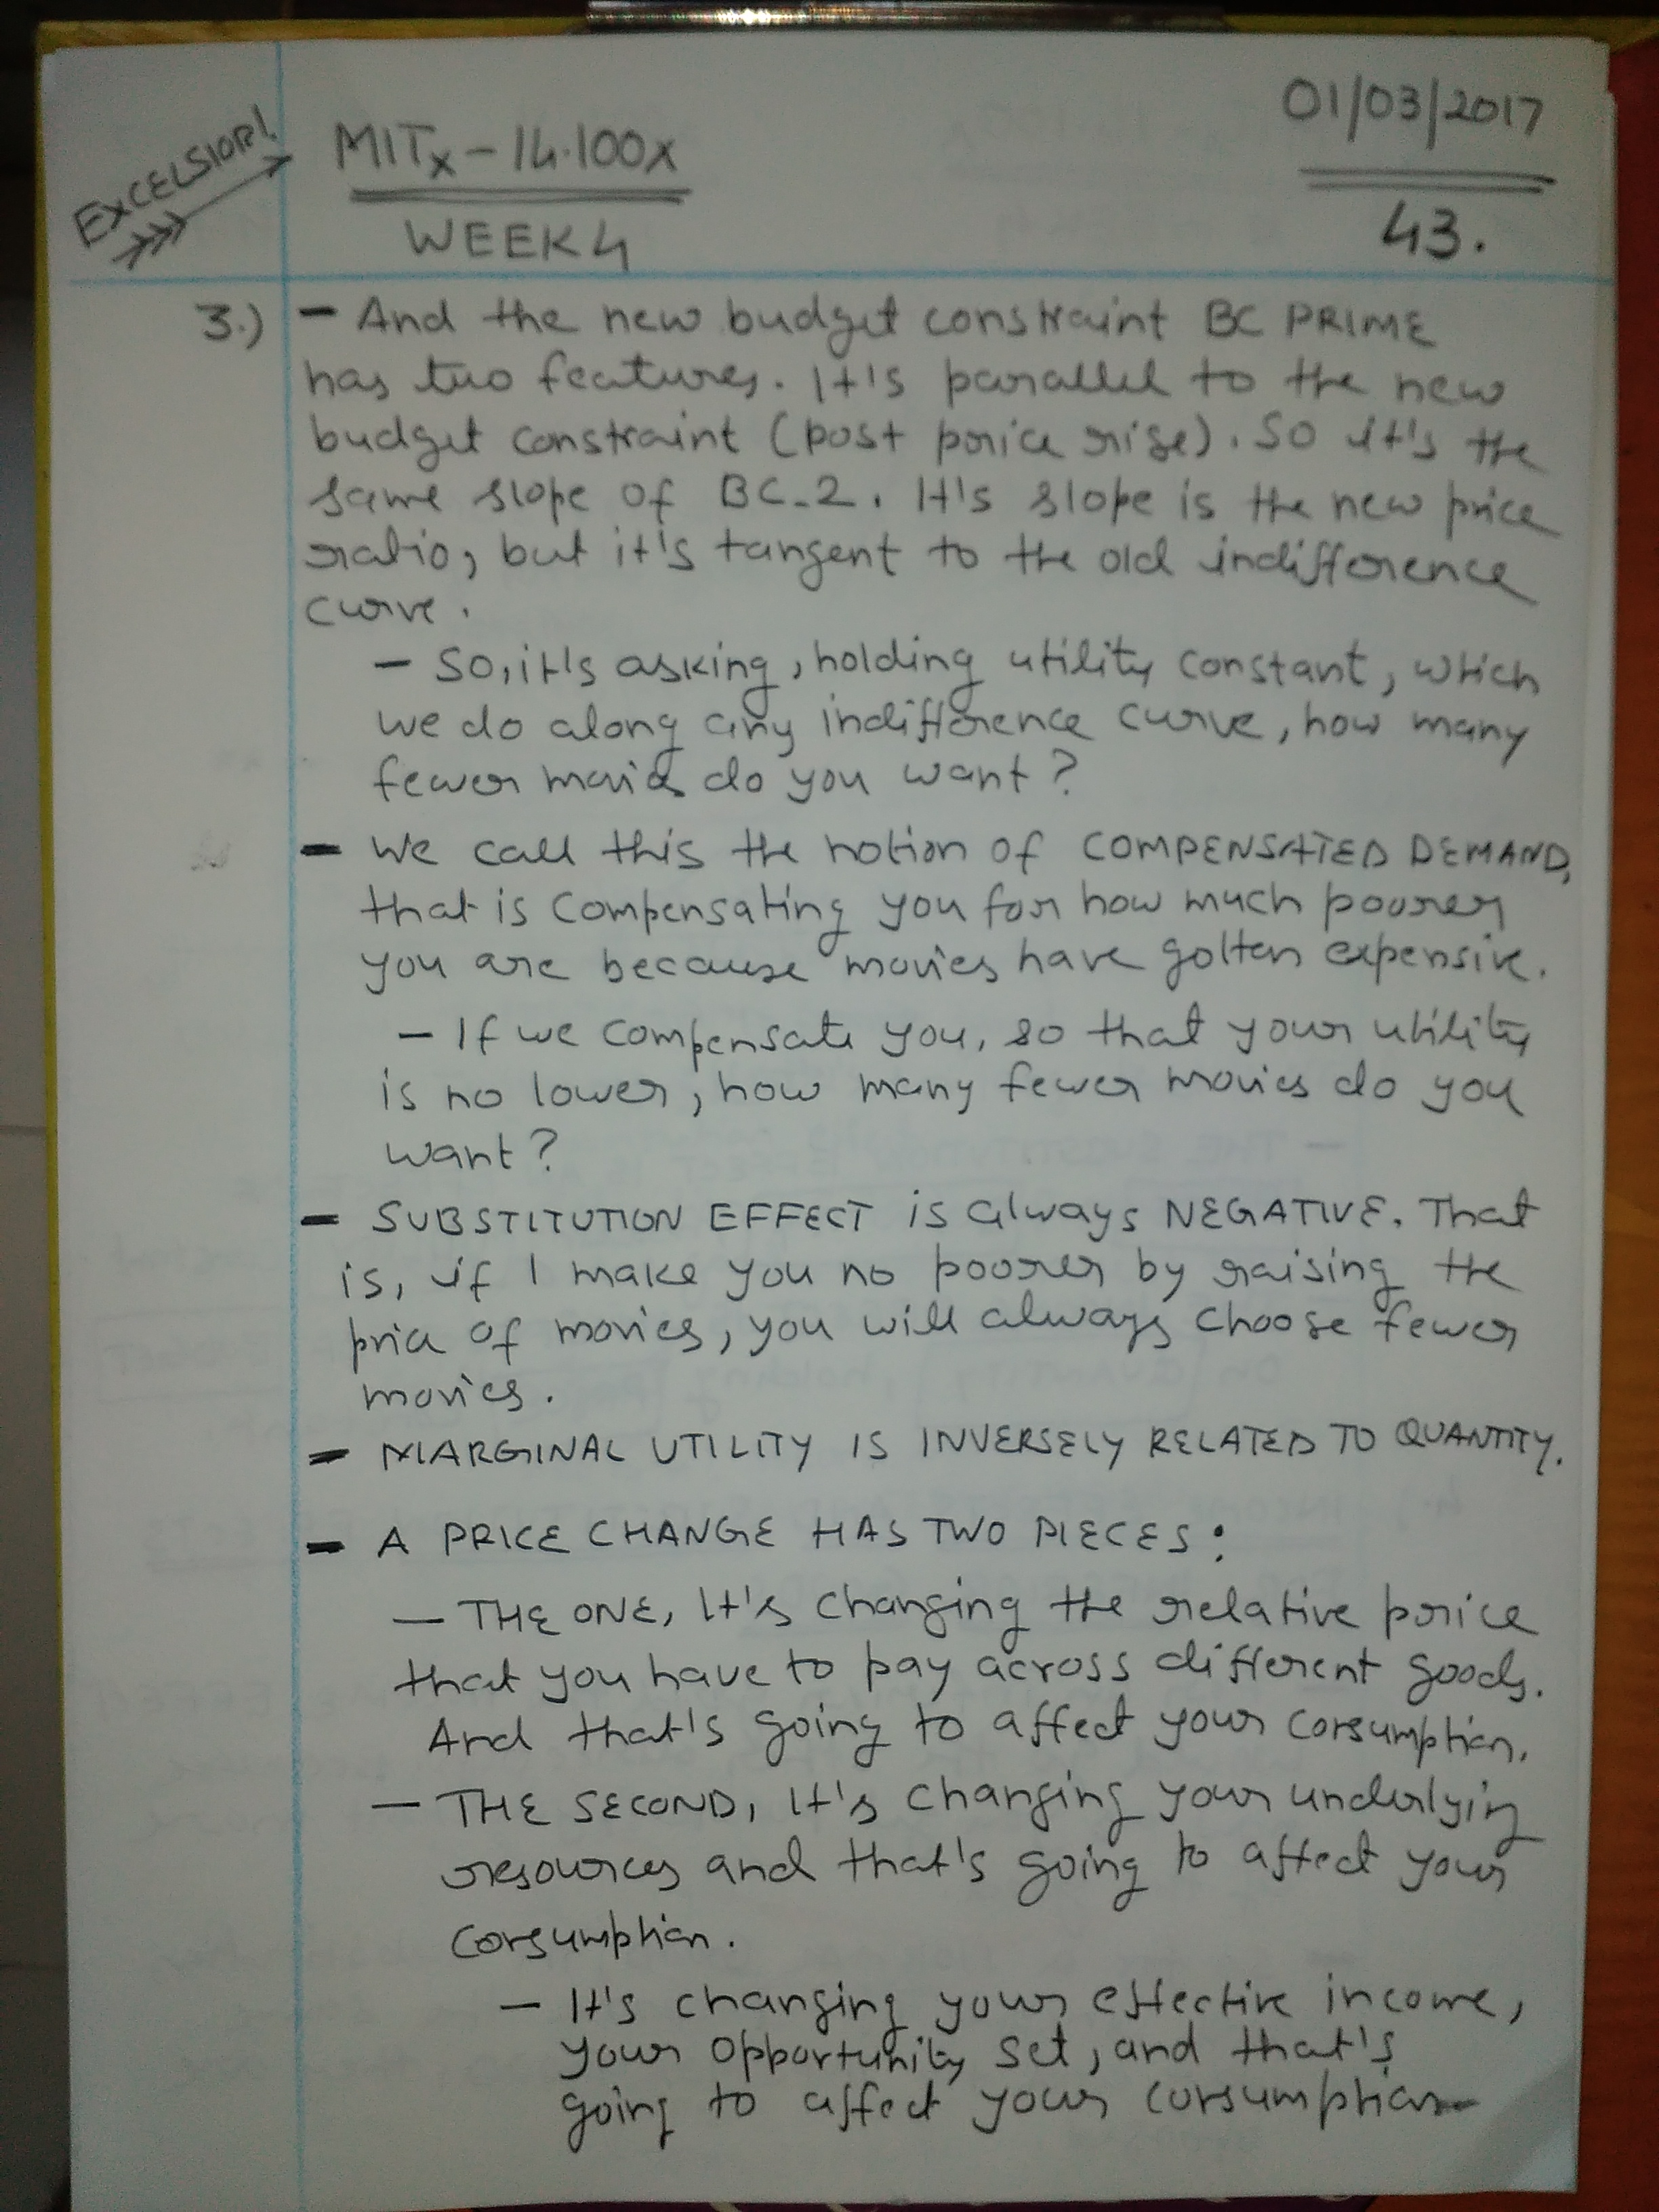 EXCELSIOR!
MITx - 14.100x
WEEK 4
01/03/2017
43.
3.) - And the new budget constraint BC PRIME
has two features. It's parallel to the new
budget constraint (post price rise). So it's the
same slope of BC-2. It's slope is the new price
ratio, but it's tangent to the old indifference
curve.
- So, it's asking, holding utility constant, which
we do along any indifference curve, how many
fewer do you want?
- We call this the notion of COMPENSATED DEMAND,
that is compensating you for how much poorer
you are because movies have gotten expensive.
- If we compensate you, so that your utility
is no lower, how many fewer movies do you
want?
- SUBSTITUTION EFFECT is always NEGATIVE. That
is, if I make you no poorer by raising the
price of movies, you will always choose fewer
movies.
- MARGINAL UTILITY IS INVERSELY RELATED TO QUANTITY.
- A PRICE CHANGE HAS TWO PIECES:
- THE ONE, It's changing the relative price
that you have to pay across different goods.
And that's going to affect your consumption.
- THE SECOND, It's changing your underlying
resources and that's going to affect your
consumption.
- It's changing your effective income,
your opportunity set, and that's
going to affect your consumption